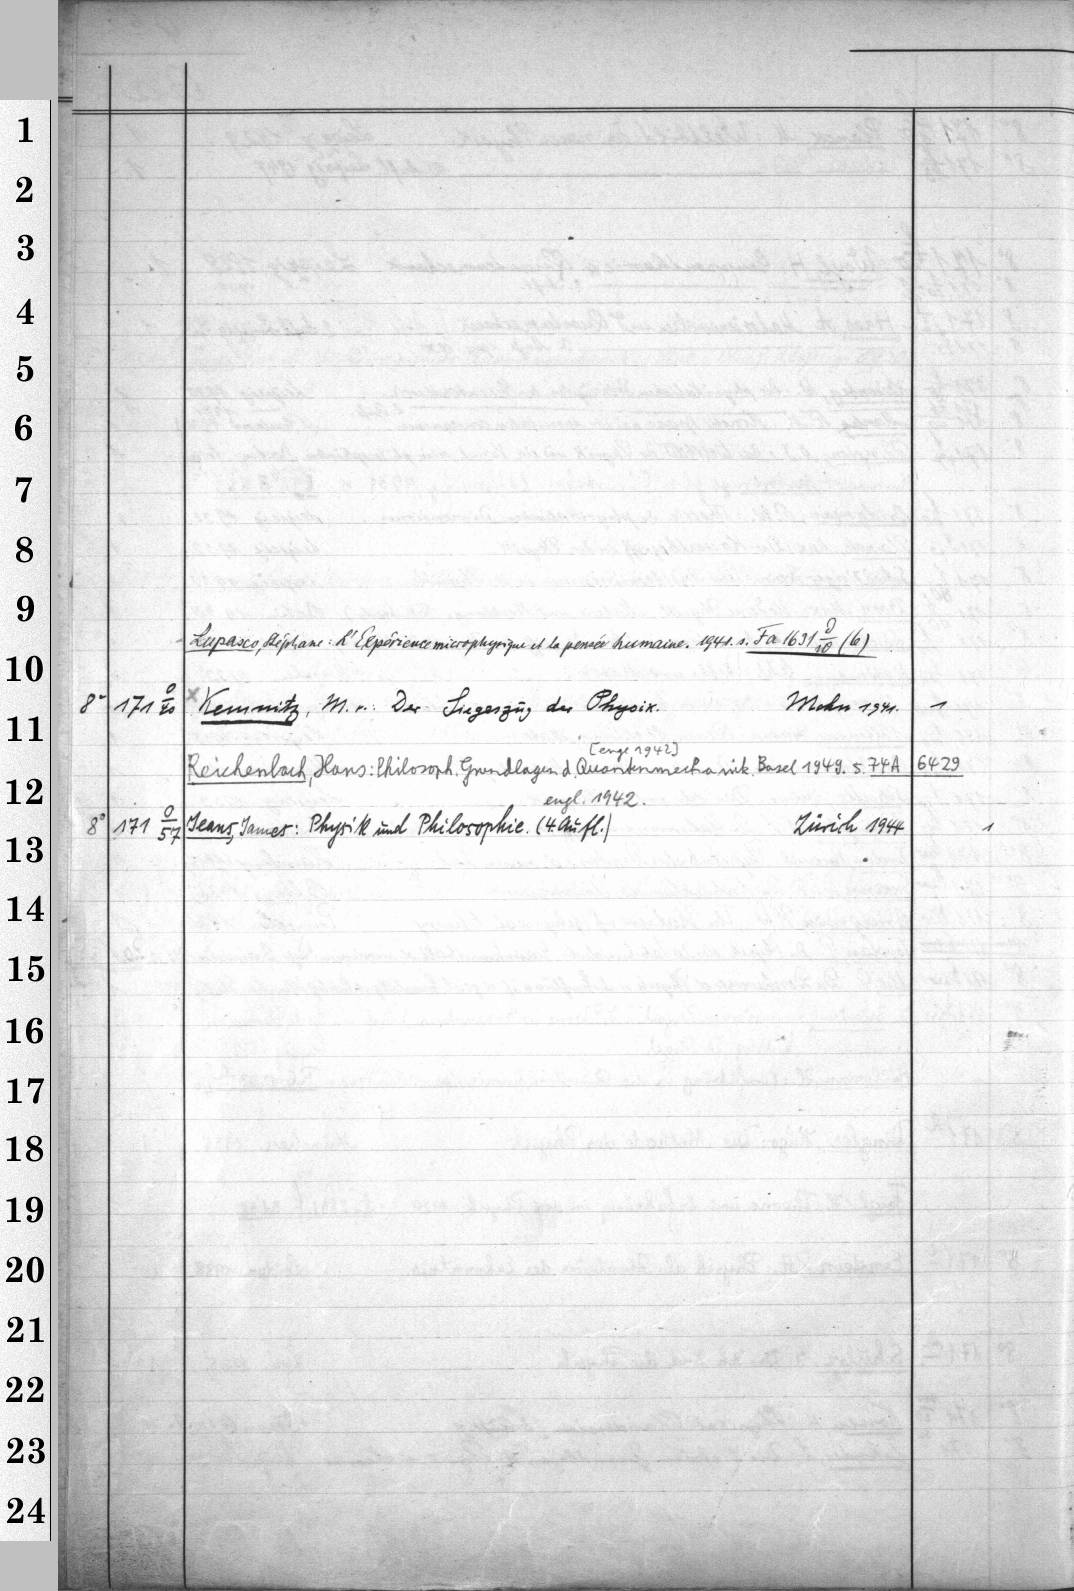 1
2
3
4
5
6
7
8
9
Lupasco, Stéphane: L'Expérience microphysique et la pensée humaine. 1941. s. Fa 1631 O/10 (6)
10
8° 171 O/20 × Kemnitz, M. v.: Der Siegeszug der Physik. Mchn 1941. 1
11
[engl 1942]
Reichenbach, Hans: Philosoph. Grundlagen d. Quantenmechanik. Basel 1949. s. 74A 6429
12
engl. 1942.
8° 171 O/57 Jeans, James: Physik und Philosophie. (4. Aufl.) Zürich 1944 1
13
14
15
16
17
18
19
20
21
22
23
24